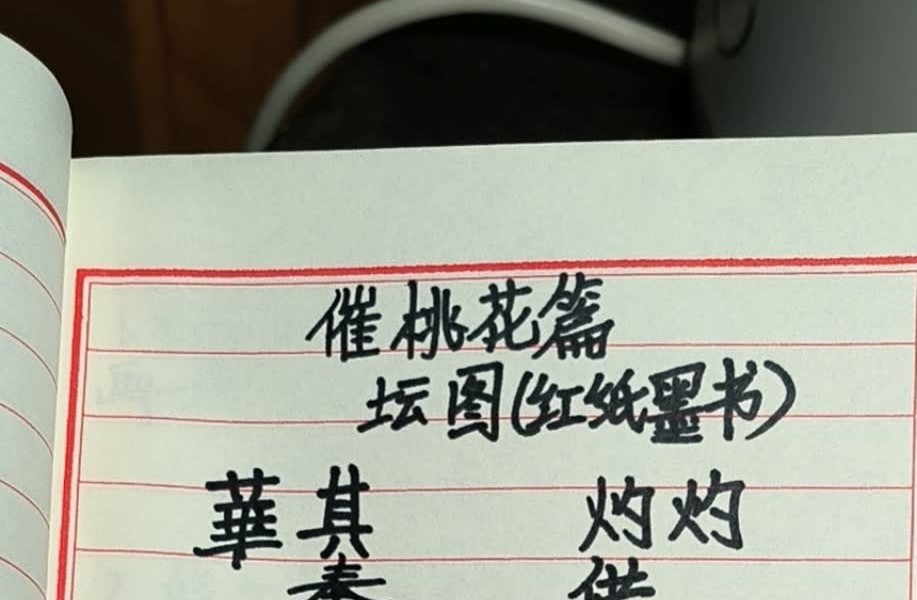 催桃花篇
坛图(红纸墨书)
華其 灼灼